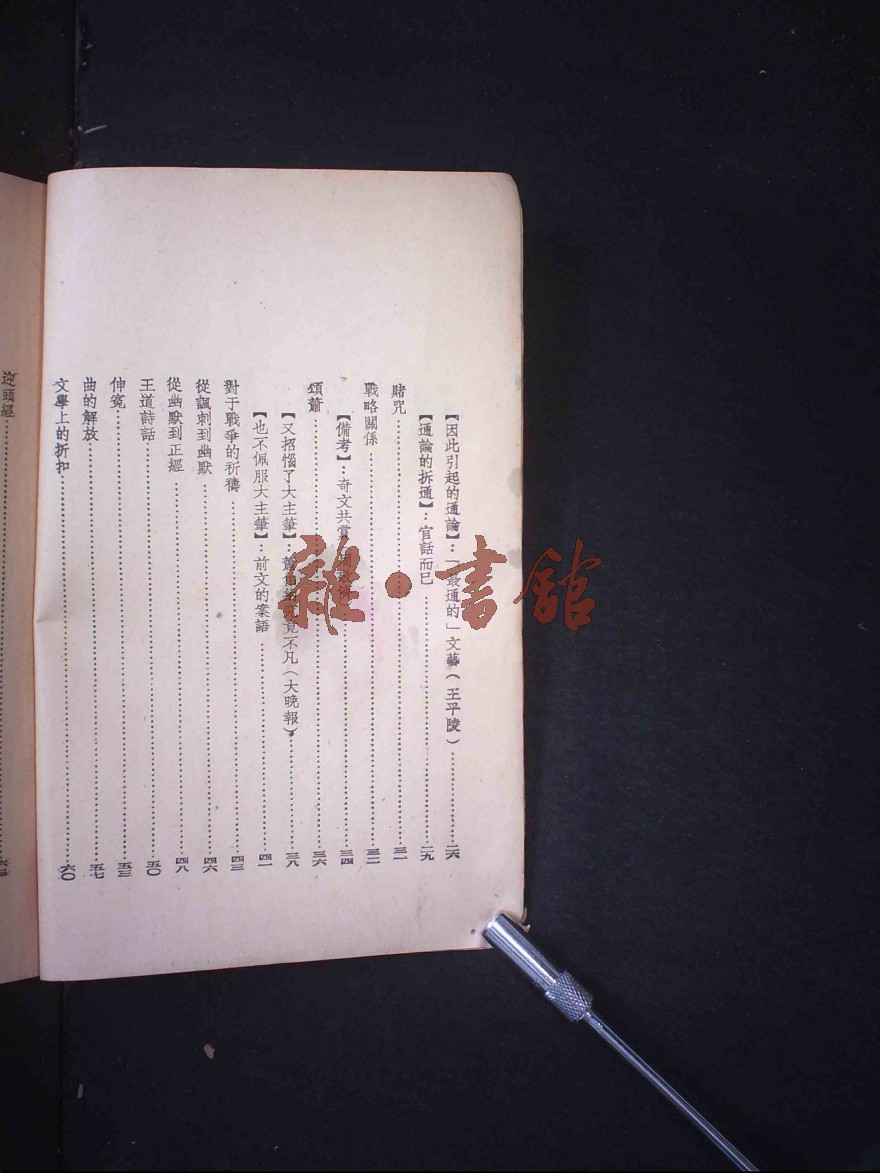 【因此引起的通論】：「最通的」文藝（王平陵）……二六
【通論的拆通】：官話而已……二九
賭咒……三一
戰略關係……三二
【備考】：奇文共賞……三四
頌蕭……三六
【又招惱了大主筆】：蕭伯納究竟不凡（大晚報）……三八
【也不佩服大主筆】：前文的案語……四一
對于戰爭的祈禱……四三
從諷刺到幽默……四六
從幽默到正經……四八
王道詩話……五〇
伸寃……五三
曲的解放……五七
文學上的折扣……六〇
迎頭經……
雜·書館